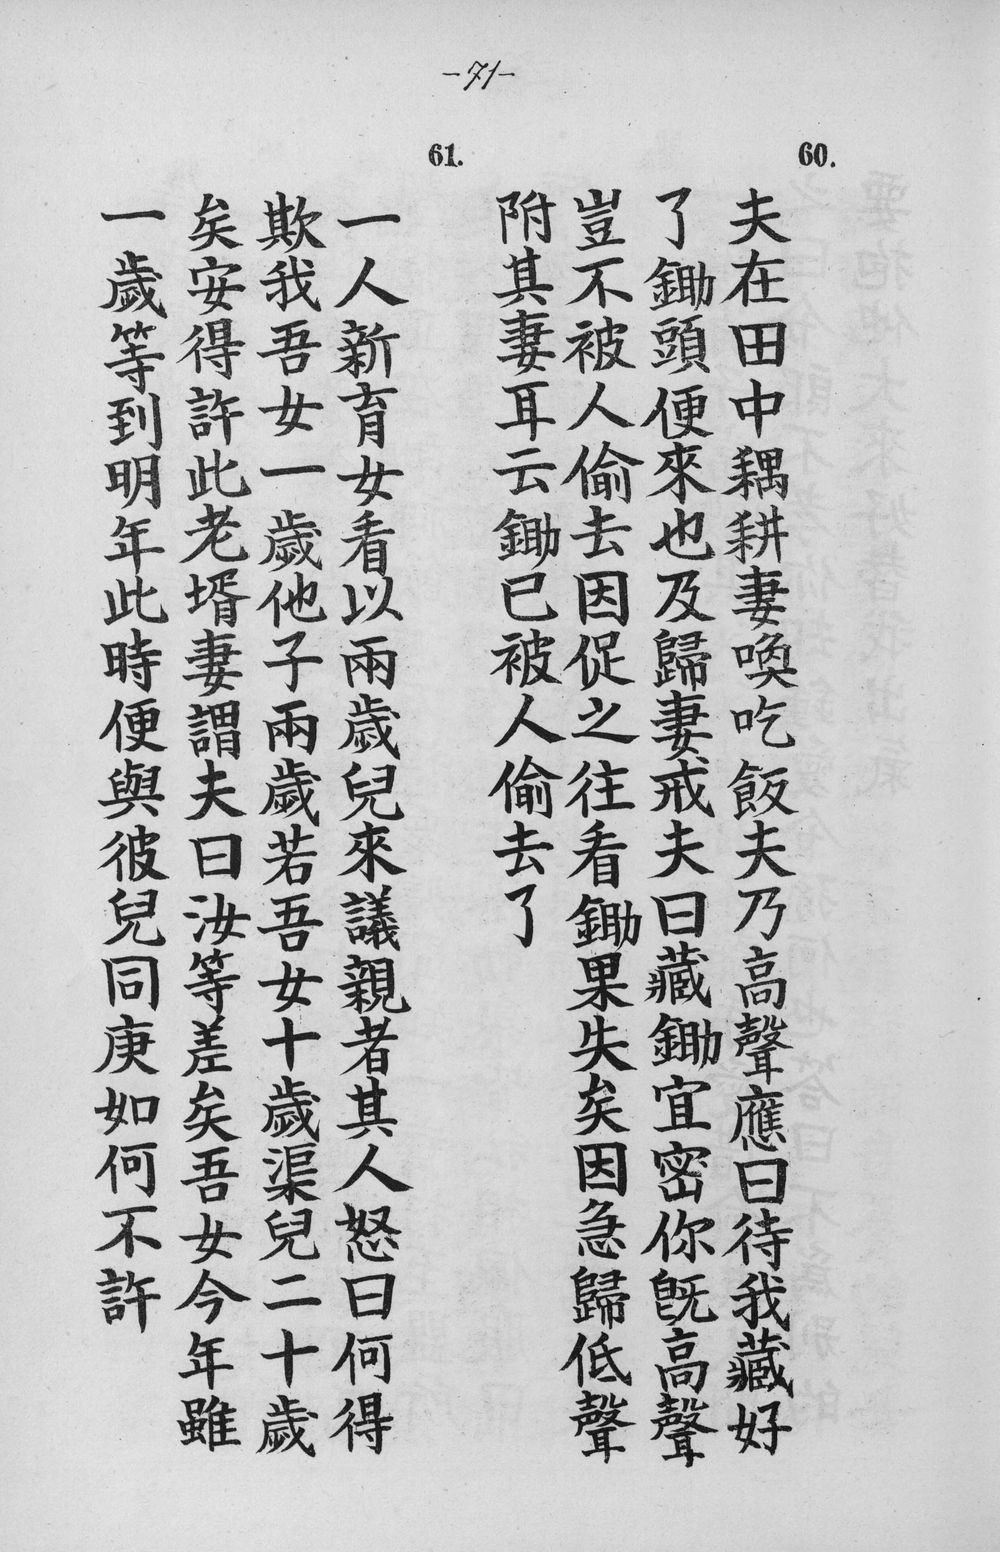 -71-
60.
夫在田中耦耕妻喚吃飯夫乃高聲應曰待我藏好
了鋤頭便來也及歸妻戒夫曰藏鋤宜密你旣高聲
豈不被人偷去因促之往看鋤果失矣因急歸低聲
附其妻耳云鋤已被人偷去了
61.
一人新育女看以兩歲兒來議親者其人怒曰何得
欺我吾女一歲他子兩歲若吾女十歲渠兒二十歲
矣安得許此老壻妻謂夫曰汝等差矣吾女今年雖
一歲等到明年此時便與彼兒同庚如何不許